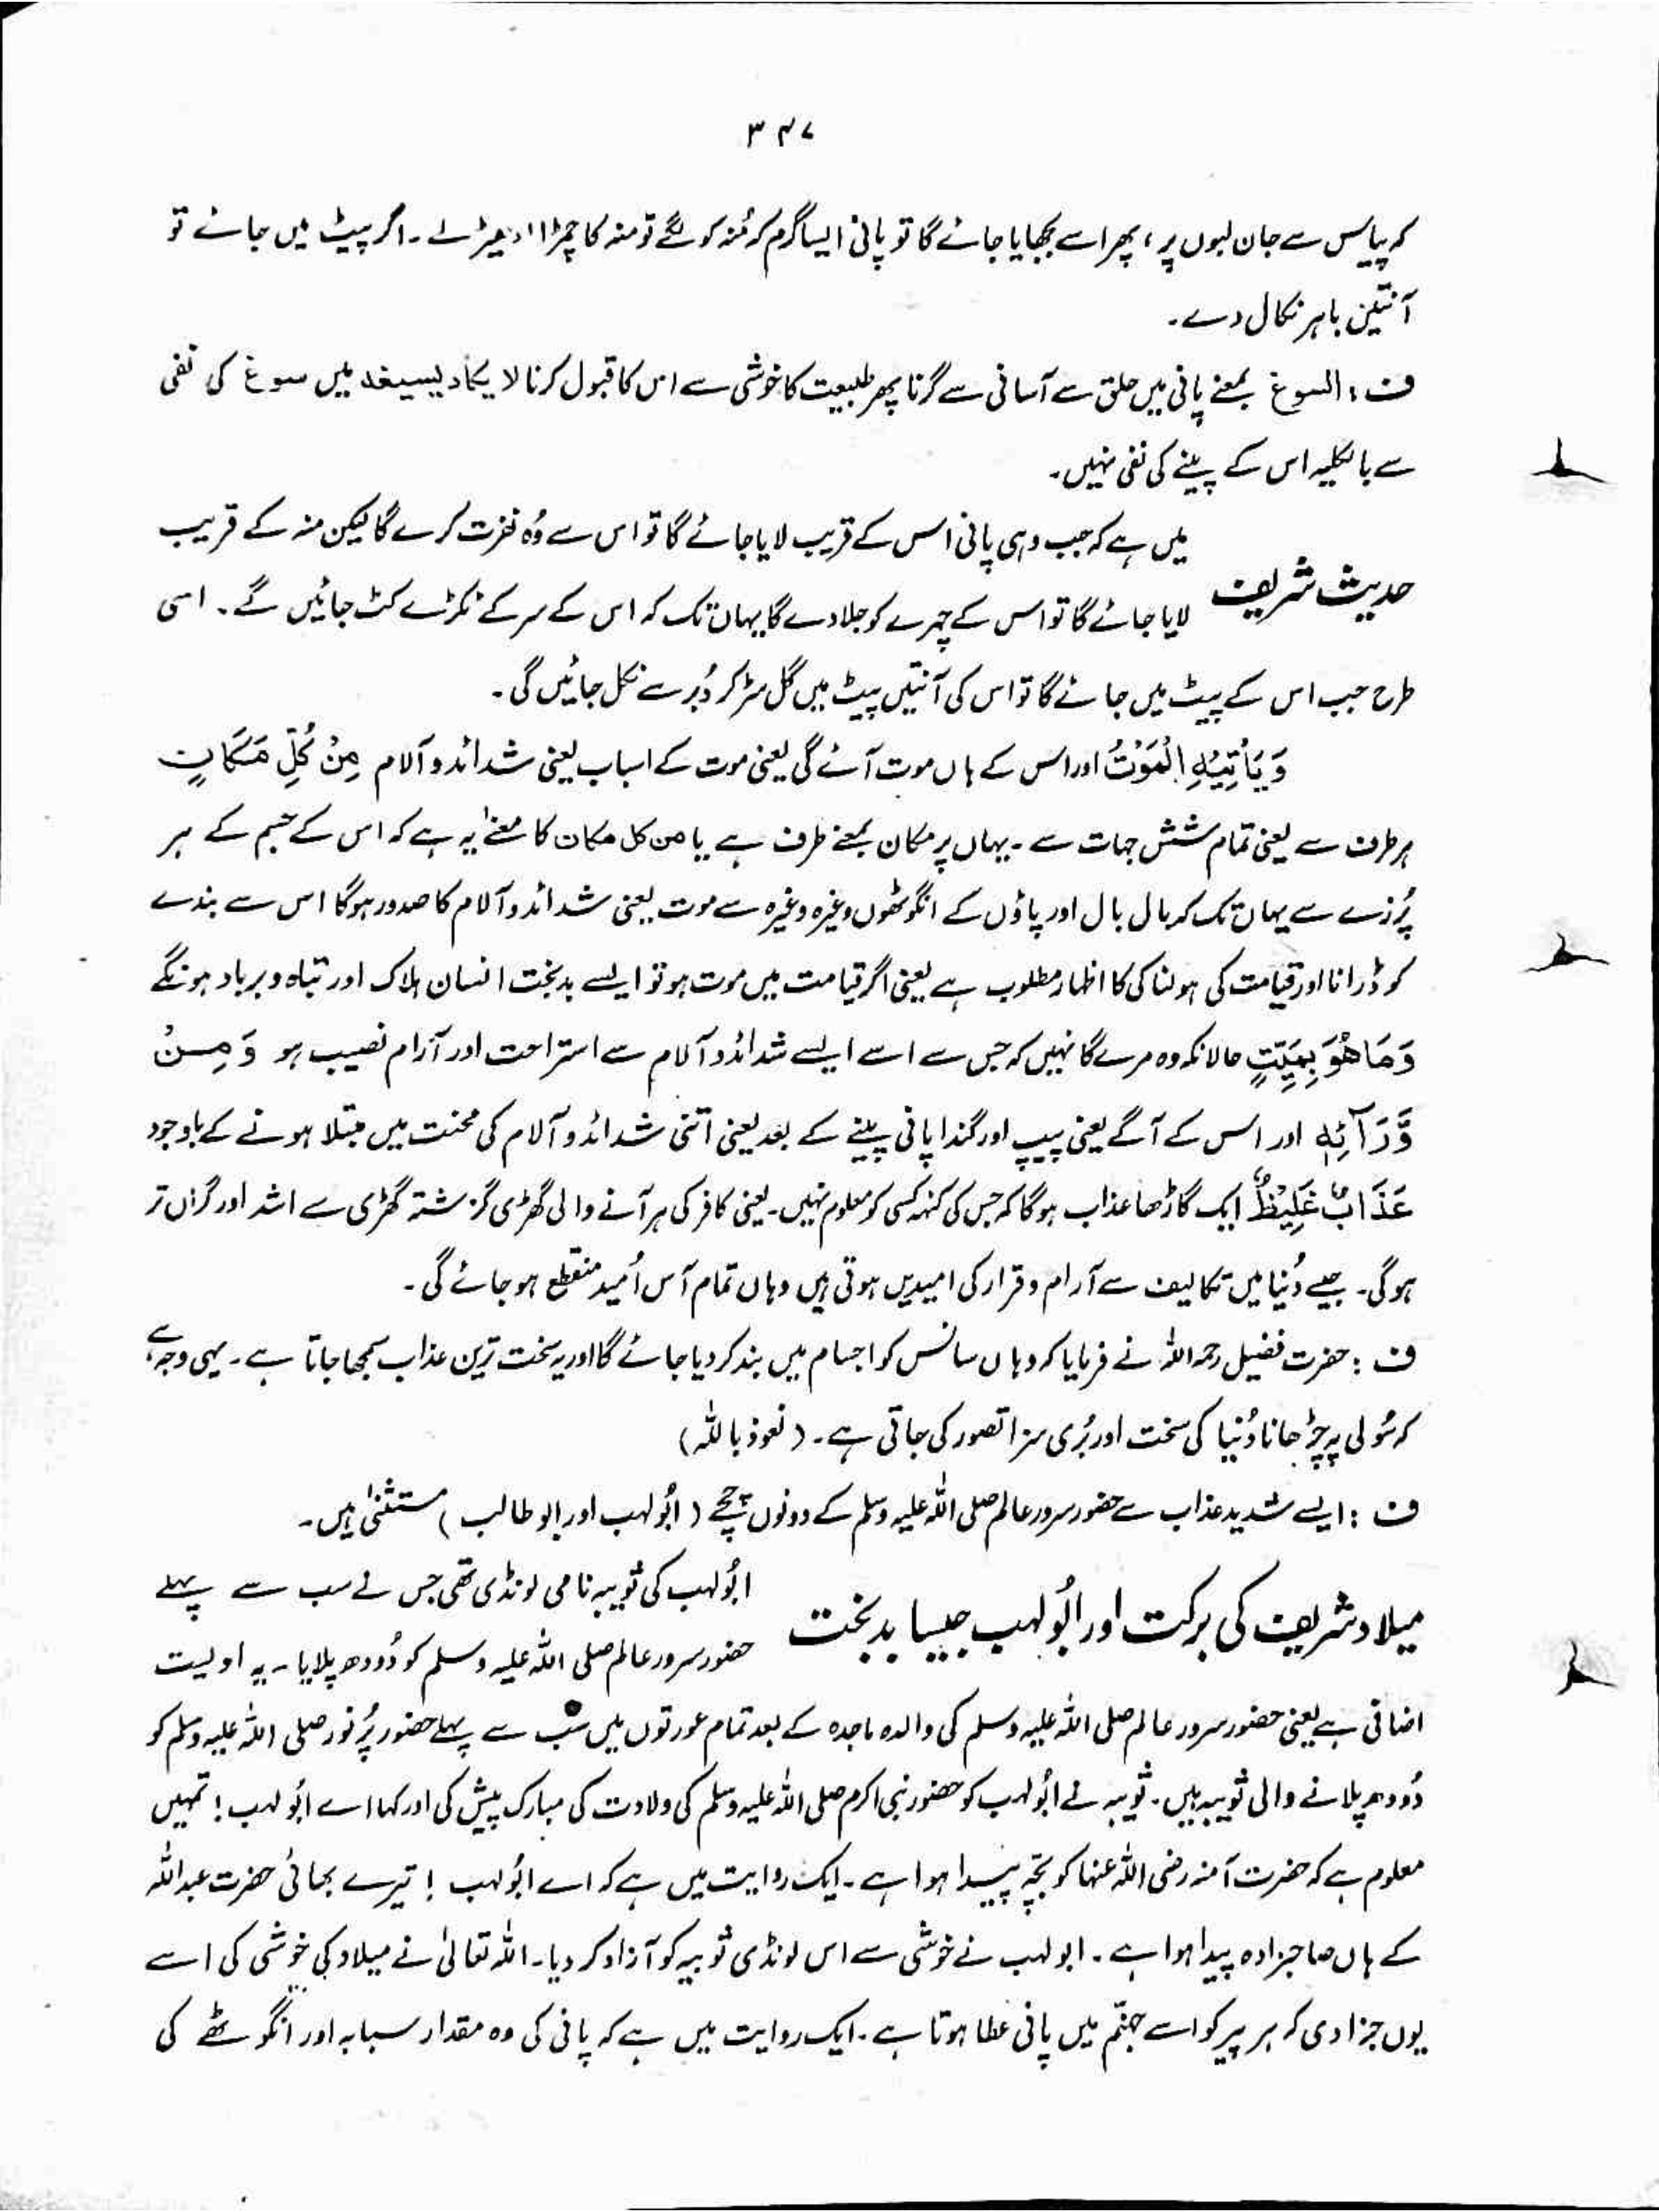 ۳۴۷
کہ پیاس سے جان لبوں پر، پھر اسے بجھایا جائے گا تو پانی ایسا گرم کہ مُنہ کو لگے تو منہ کا چمڑا ادھیڑ لے ۔ اگر پیٹ میں جائے تو
آنتیں باہر نکال دے ۔
ف : السوغ بمعنے پانی میں حلق سے آسانی سے گرنا پھر طبیعت کا خوشی سے اس کا قبول کرنا لا یکاد یسیغہ میں سوغ کی نفی
سے بالکلیہ اس کے پینے کی نفی نہیں ۔
حدیث شریف میں ہے کہ جب وہی پانی اس کے قریب لایا جائے گا تو اس سے وُہ نفرت کرے گا لیکن منہ کے قریب
لایا جائے گا تو اس کے چہرے کو جلا دے گا یہاں تک کہ اس کے سر کے ٹکڑے کٹ جائیں گے ۔ اسی
طرح جب اس کے پیٹ میں جائے گا تو اس کی آنتیں پیٹ میں گل سڑ کر دُبر سے نکل جائیں گی ۔
وَ یَأْتِیْہِ الْمَوْتُ اور اس کے ہاں موت آئے گی یعنی موت کے اسباب یعنی شدائد و آلام مِنْ کُلِّ مَکَانٍ
ہر طرف سے یعنی تمام شش جہات سے ۔ یہاں پر مکان بمعنے طرف ہے یا من کل مکان کا معنےٰ یہ ہے کہ اس کے جسم کے ہر
پُرزے سے یہاں تک کہ بال بال اور پاؤں کے انگوٹھوں وغیرہ وغیرہ سے موت یعنی شدائد و آلام کا صدور ہوگا اس سے بندے
کو ڈرانا اور قیامت کی ہولناکی کا اظہار مطلوب ہے یعنی اگر قیامت میں موت ہو تو ایسے بدبخت انسان ہلاک اور تباہ و برباد ہونگے
وَمَا ھُوَ بِمَیِّتٍ حالانکہ وہ مرے گا نہیں کہ جس سے اسے ایسے شدائد و آلام سے استراحت اور آرام نصیب ہو وَ مِنْ
وَّرَآئِہٖ اور اس کے آگے یعنی پیپ اور گندا پانی پینے کے بعد یعنی اتنی شدائد و آلام کی محنت میں مبتلا ہونے کے باوجود
عَذَابٌ غَلِیْظٌ ایک گاڑھا عذاب ہوگا کہ جس کی کنہ کسی کو معلوم نہیں ۔ یعنی کافر کی ہر آنے والی گھڑی گزشتہ گھڑی سے اشد اور گراں تر
ہوگی ۔ جیسے دُنیا میں تکالیف سے آرام و قرار کی امیدیں ہوتی ہیں وہاں تمام آس اُمید منقطع ہو جائے گی ۔
ف : حضرت فضیل رحمہ اللہ نے فرمایا کہ وہاں سانس کو اجسام میں بند کر دیا جائے گا اور یہ سخت ترین عذاب سمجھا جاتا ہے ۔ یہی وجہ ہے
کہ سُولی پہ چڑھانا دُنیا کی سخت اور بُری سزا تصور کی جاتی ہے ۔ (نعوذ باللہ)
ف : ایسے شدید عذاب سے حضور سرور عالم صلی اللہ علیہ وسلم کے دونوں چچے (ابُولہب اور ابو طالب) مستثنیٰ ہیں ۔
میلاد شریف کی برکت اور ابُولہب جیسا بدبخت ابُولہب کی ثویبہ نامی لونڈی تھی جس نے سب سے پہلے
حضور سرور عالم صلی اللہ علیہ وسلم کو دُودھ پلایا ۔ یہ اولیت
اضافی ہے یعنی حضور سرور عالم صلی اللہ علیہ وسلم کی والدہ ماجدہ کے بعد تمام عورتوں میں سب سے پہلے حضور پُر نور صلی اللہ علیہ وسلم کو
دُودھ پلانے والی ثویبہ ہیں ۔ ثویبہ نے ابُولہب کو حضور نبی اکرم صلی اللہ علیہ وسلم کی ولادت کی مبارک پیش کی اور کہا اے ابُولہب ! تمہیں
معلوم ہے کہ حضرت آمنہ رضی اللہ عنہا کو بچّہ پیدا ہوا ہے ۔ ایک روایت میں ہے کہ اے ابُولہب ! تیرے بھائی حضرت عبداللہ
کے ہاں صاحبزادہ پیدا ہوا ہے ۔ ابولہب نے خوشی سے اس لونڈی ثویبہ کو آزاد کر دیا ۔ اللہ تعالیٰ نے میلاد کی خوشی کی اسے
یوں جزا دی کہ ہر پیر کو اسے جہنّم میں پانی عطا ہوتا ہے ۔ ایک روایت میں ہے کہ پانی کی وہ مقدار سبابہ اور انگوٹھے کی